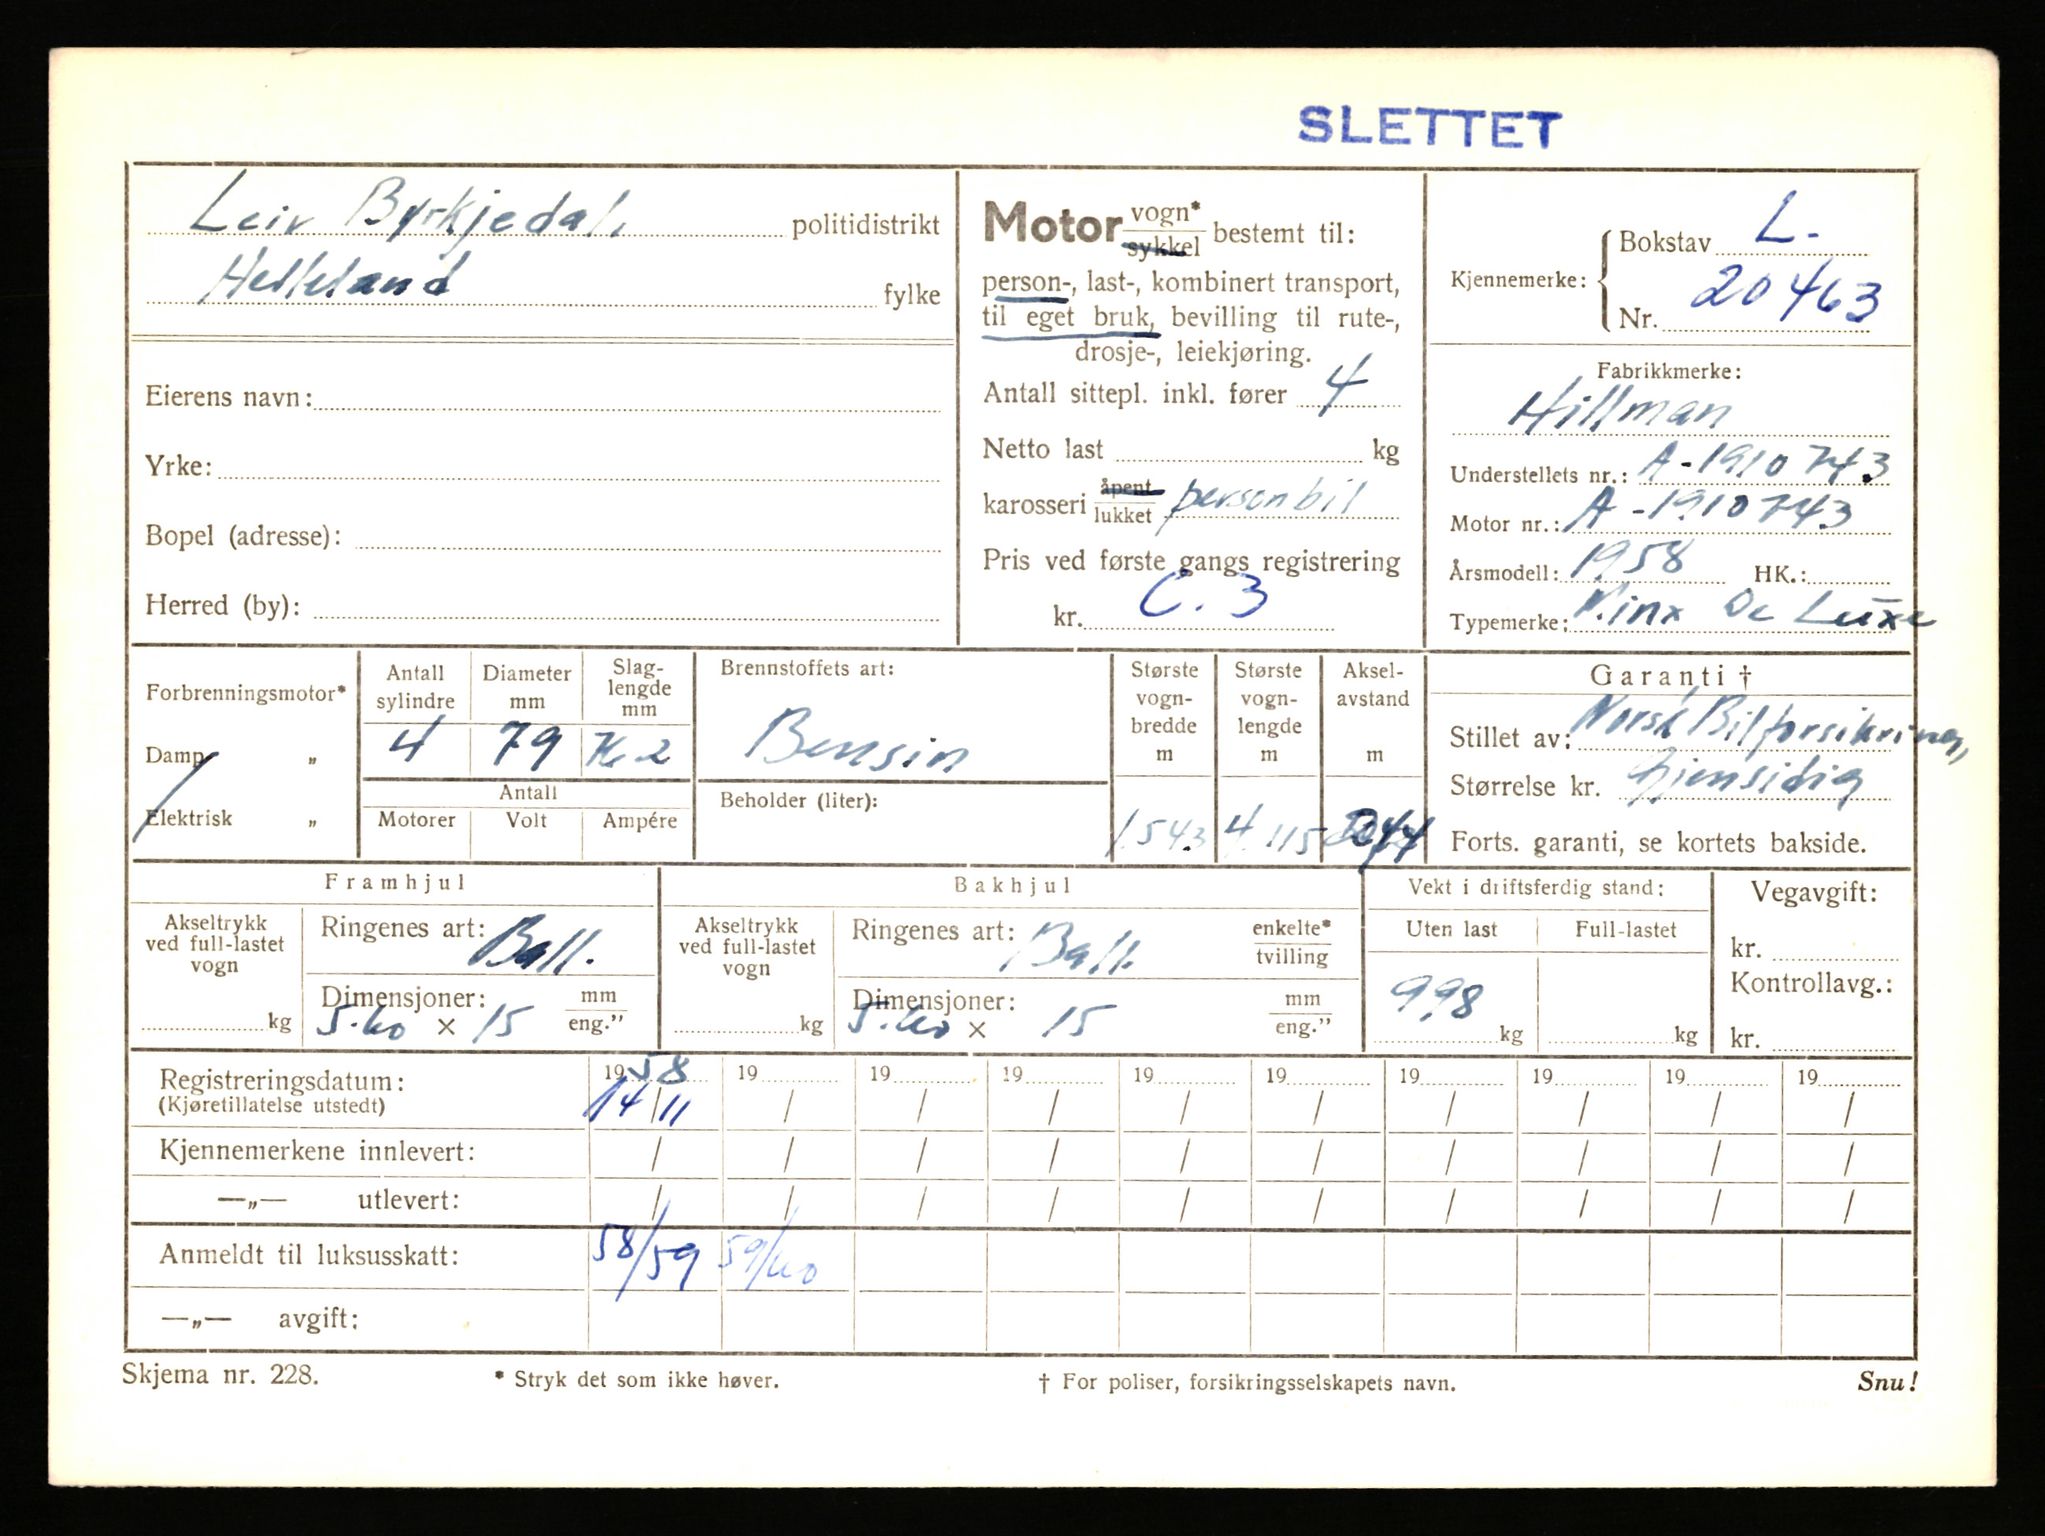 SLETTET
Leiv Byrkjedal, politidistrikt
Helleland fylke
Eierens navn:
Yrke:
Bopel (adresse):
Herred (by):
Motor vogn* sykkel bestemt til:
person-, last-, kombinert transport,
til eget bruk, bevilling til rute-,
drosje-, leiekjøring.
Antall sittepl. inkl. fører 4
Netto last kg
karosseri åpent lukket personbil
Pris ved første gangs registrering
kr. C. 3
Kjennemerke: Bokstav L.
Nr. 20463
Fabrikkmerke:
Hillman
Understellets nr.: A-1910743
Motor nr.: A-1910743
Årsmodell: 1958 HK.:
Typemerke: Minx De Luxe
Forbrenningsmotor*
Damp „
Elektrisk „
Antall sylindre Diameter mm Slaglengde mm
4 79 76.2
Antall
Motorer Volt Ampére
Brennstoffets art:
Bensin
Beholder (liter):
Største vognbredde m 1.543
Største vognlengde m 4.115
Akselavstand m
Garanti †
Stillet av: Norsk Bilforsikring,
Størrelse kr. Gjensidig
Forts. garanti, se kortets bakside.
Framhjul
Akseltrykk ved full-lastet vogn kg
Ringenes art: Ball.
Dimensjoner: mm eng."
5.60 × 15
Bakhjul
Akseltrykk ved full-lastet vogn kg
Ringenes art: Ball. enkelte* tvilling
Dimensjoner: mm eng."
5.60 × 15
Vekt i driftsferdig stand:
Uten last Full-lastet
998 kg kg
Vegavgift:
kr.
Kontrollavg.:
kr.
Registreringsdatum: 1958 19 19 19 19 19 19 19 19 19
(Kjøretillatelse utstedt) 14/11 / / / / / / / / /
Kjennemerkene innlevert: / / / / / / / / / /
—„— utlevert: / / / / / / / / / /
Anmeldt til luksusskatt: 58/59 59/60
—„— avgift:
Skjema nr. 228. * Stryk det som ikke høver. † For poliser, forsikringsselskapets navn. Snu!